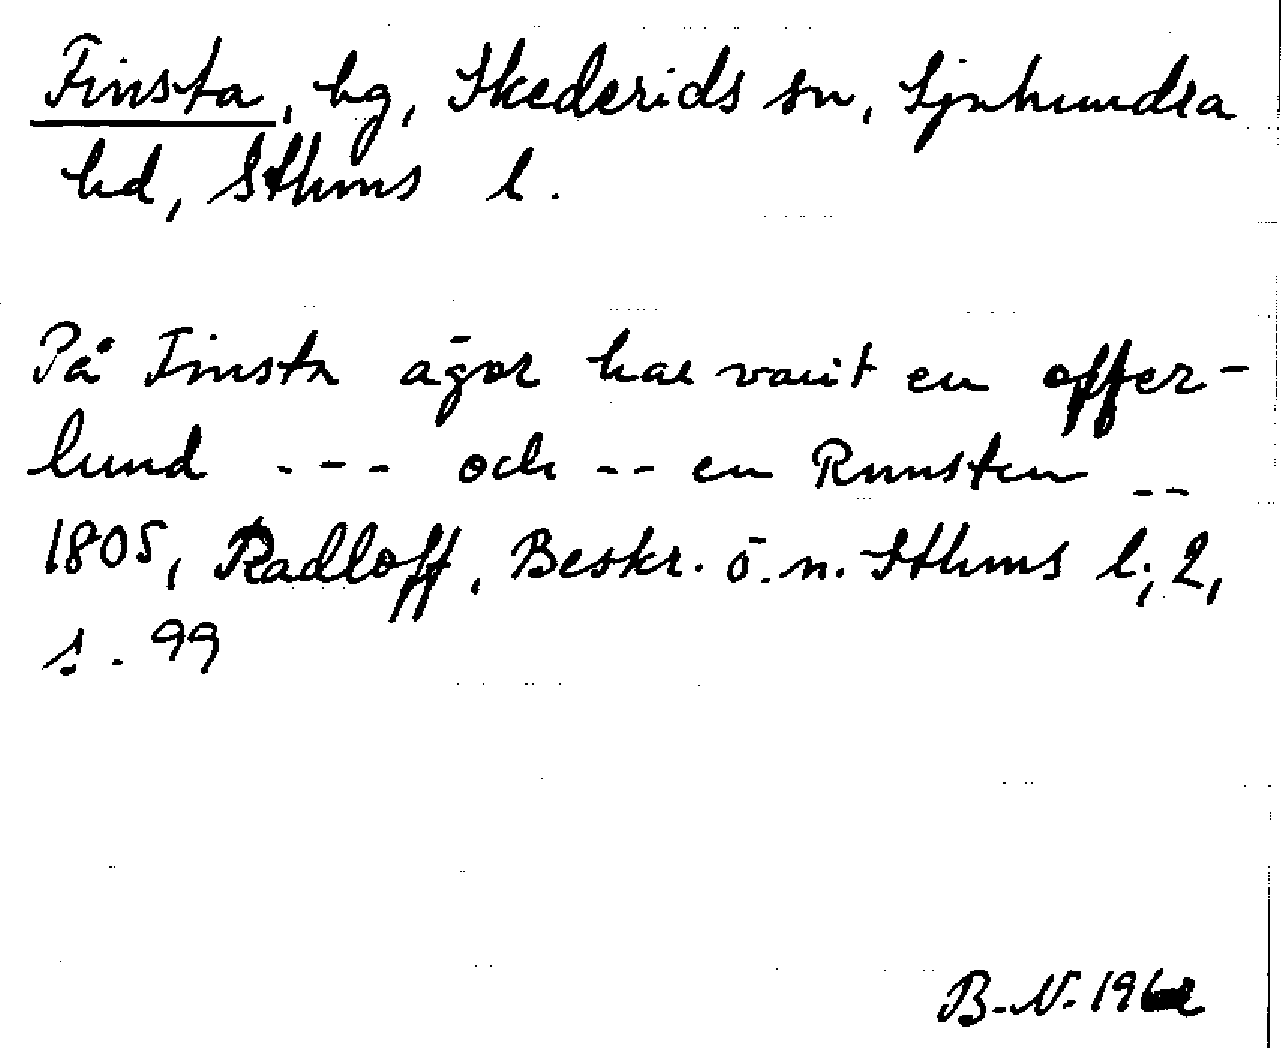 Finsta, hg, Skederids sn, Sjuhundra
hd, Sthms l.
På Finsta ägor har varit en offer-
lund --- och -- en Runsten --
1805, Radloff, Beskr. ö. n. Sthms l; 2,
s. 99
B-N. 1962